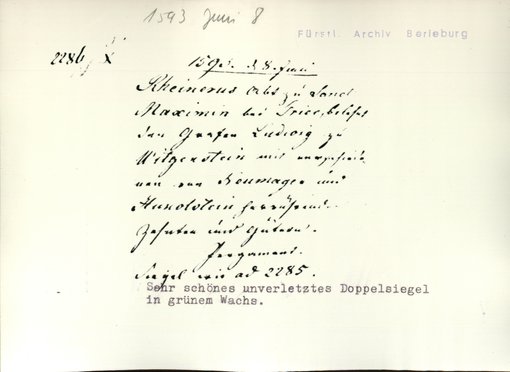 1593 Juni 8
Fürstl. Archiv Berleburg
2286, X
1593. d. 8. Juni
Rheinerus Abt zu Sanct
Maximin bei Trier, belehnt
den Grafen Ludwig zu
Witgenstein mit verschiede
nen von Neumagen und
Hunolstein herrührend.
Zehnten und Gütern.
Pergament.
Siegel wie ad 2285.
Sehr schönes unverletztes Doppelsiegel
in grünem Wachs.